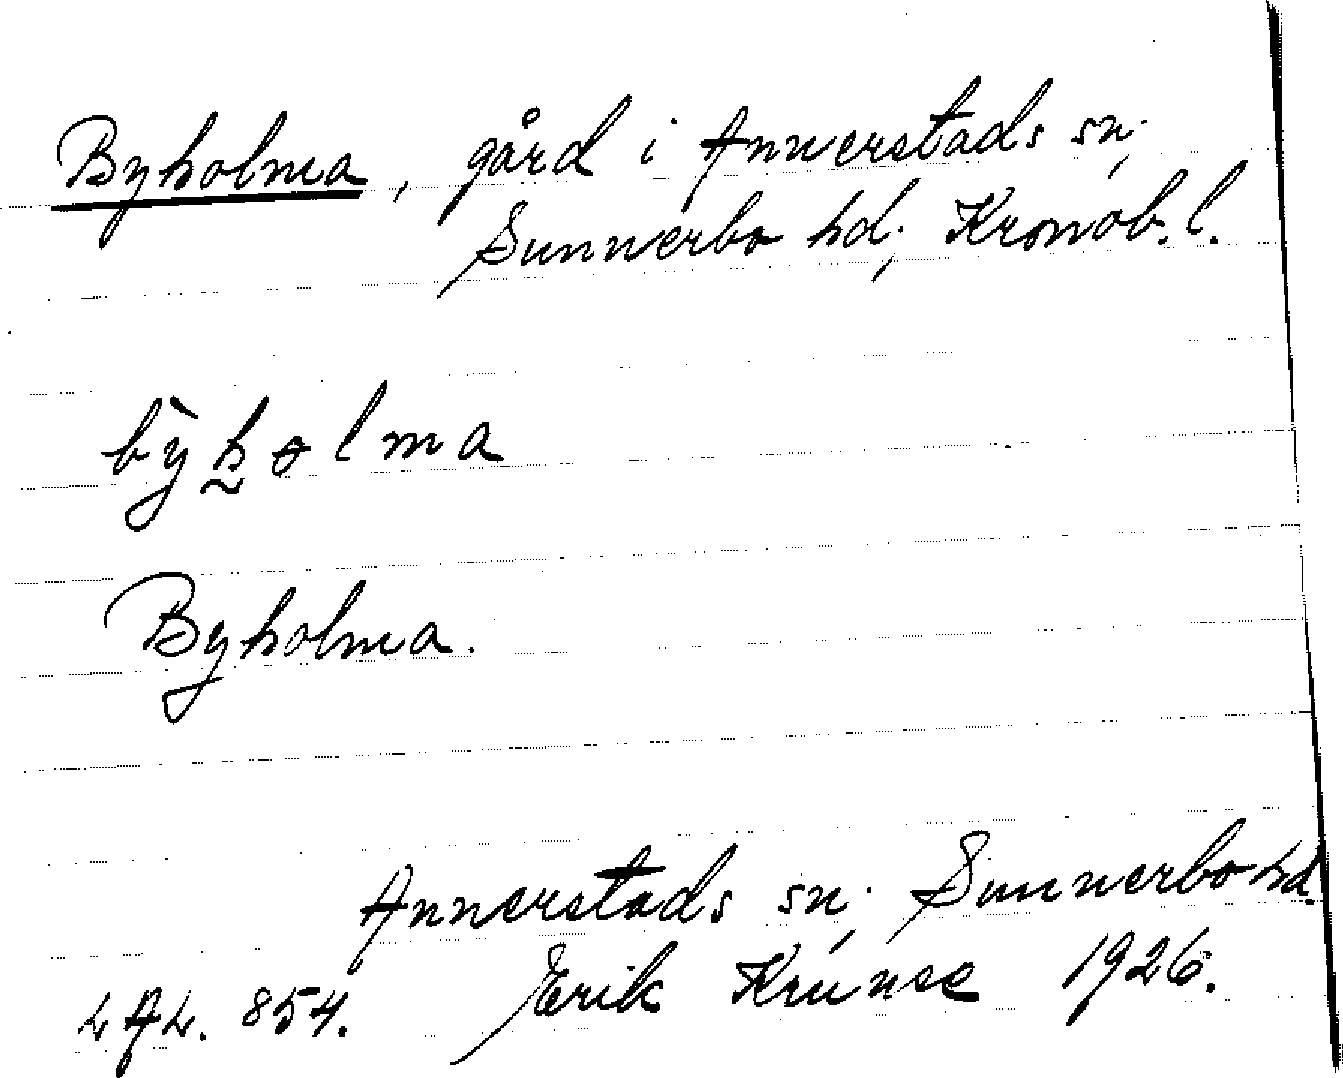 Byholma, gård i Annerstads sn,
Sunnerbo hd, Kronob. l.
bỳhọlma
Byholma.
Annerstads sn, Sunnerbo hd.
LAL. 854. Erik Kruuse 1926.